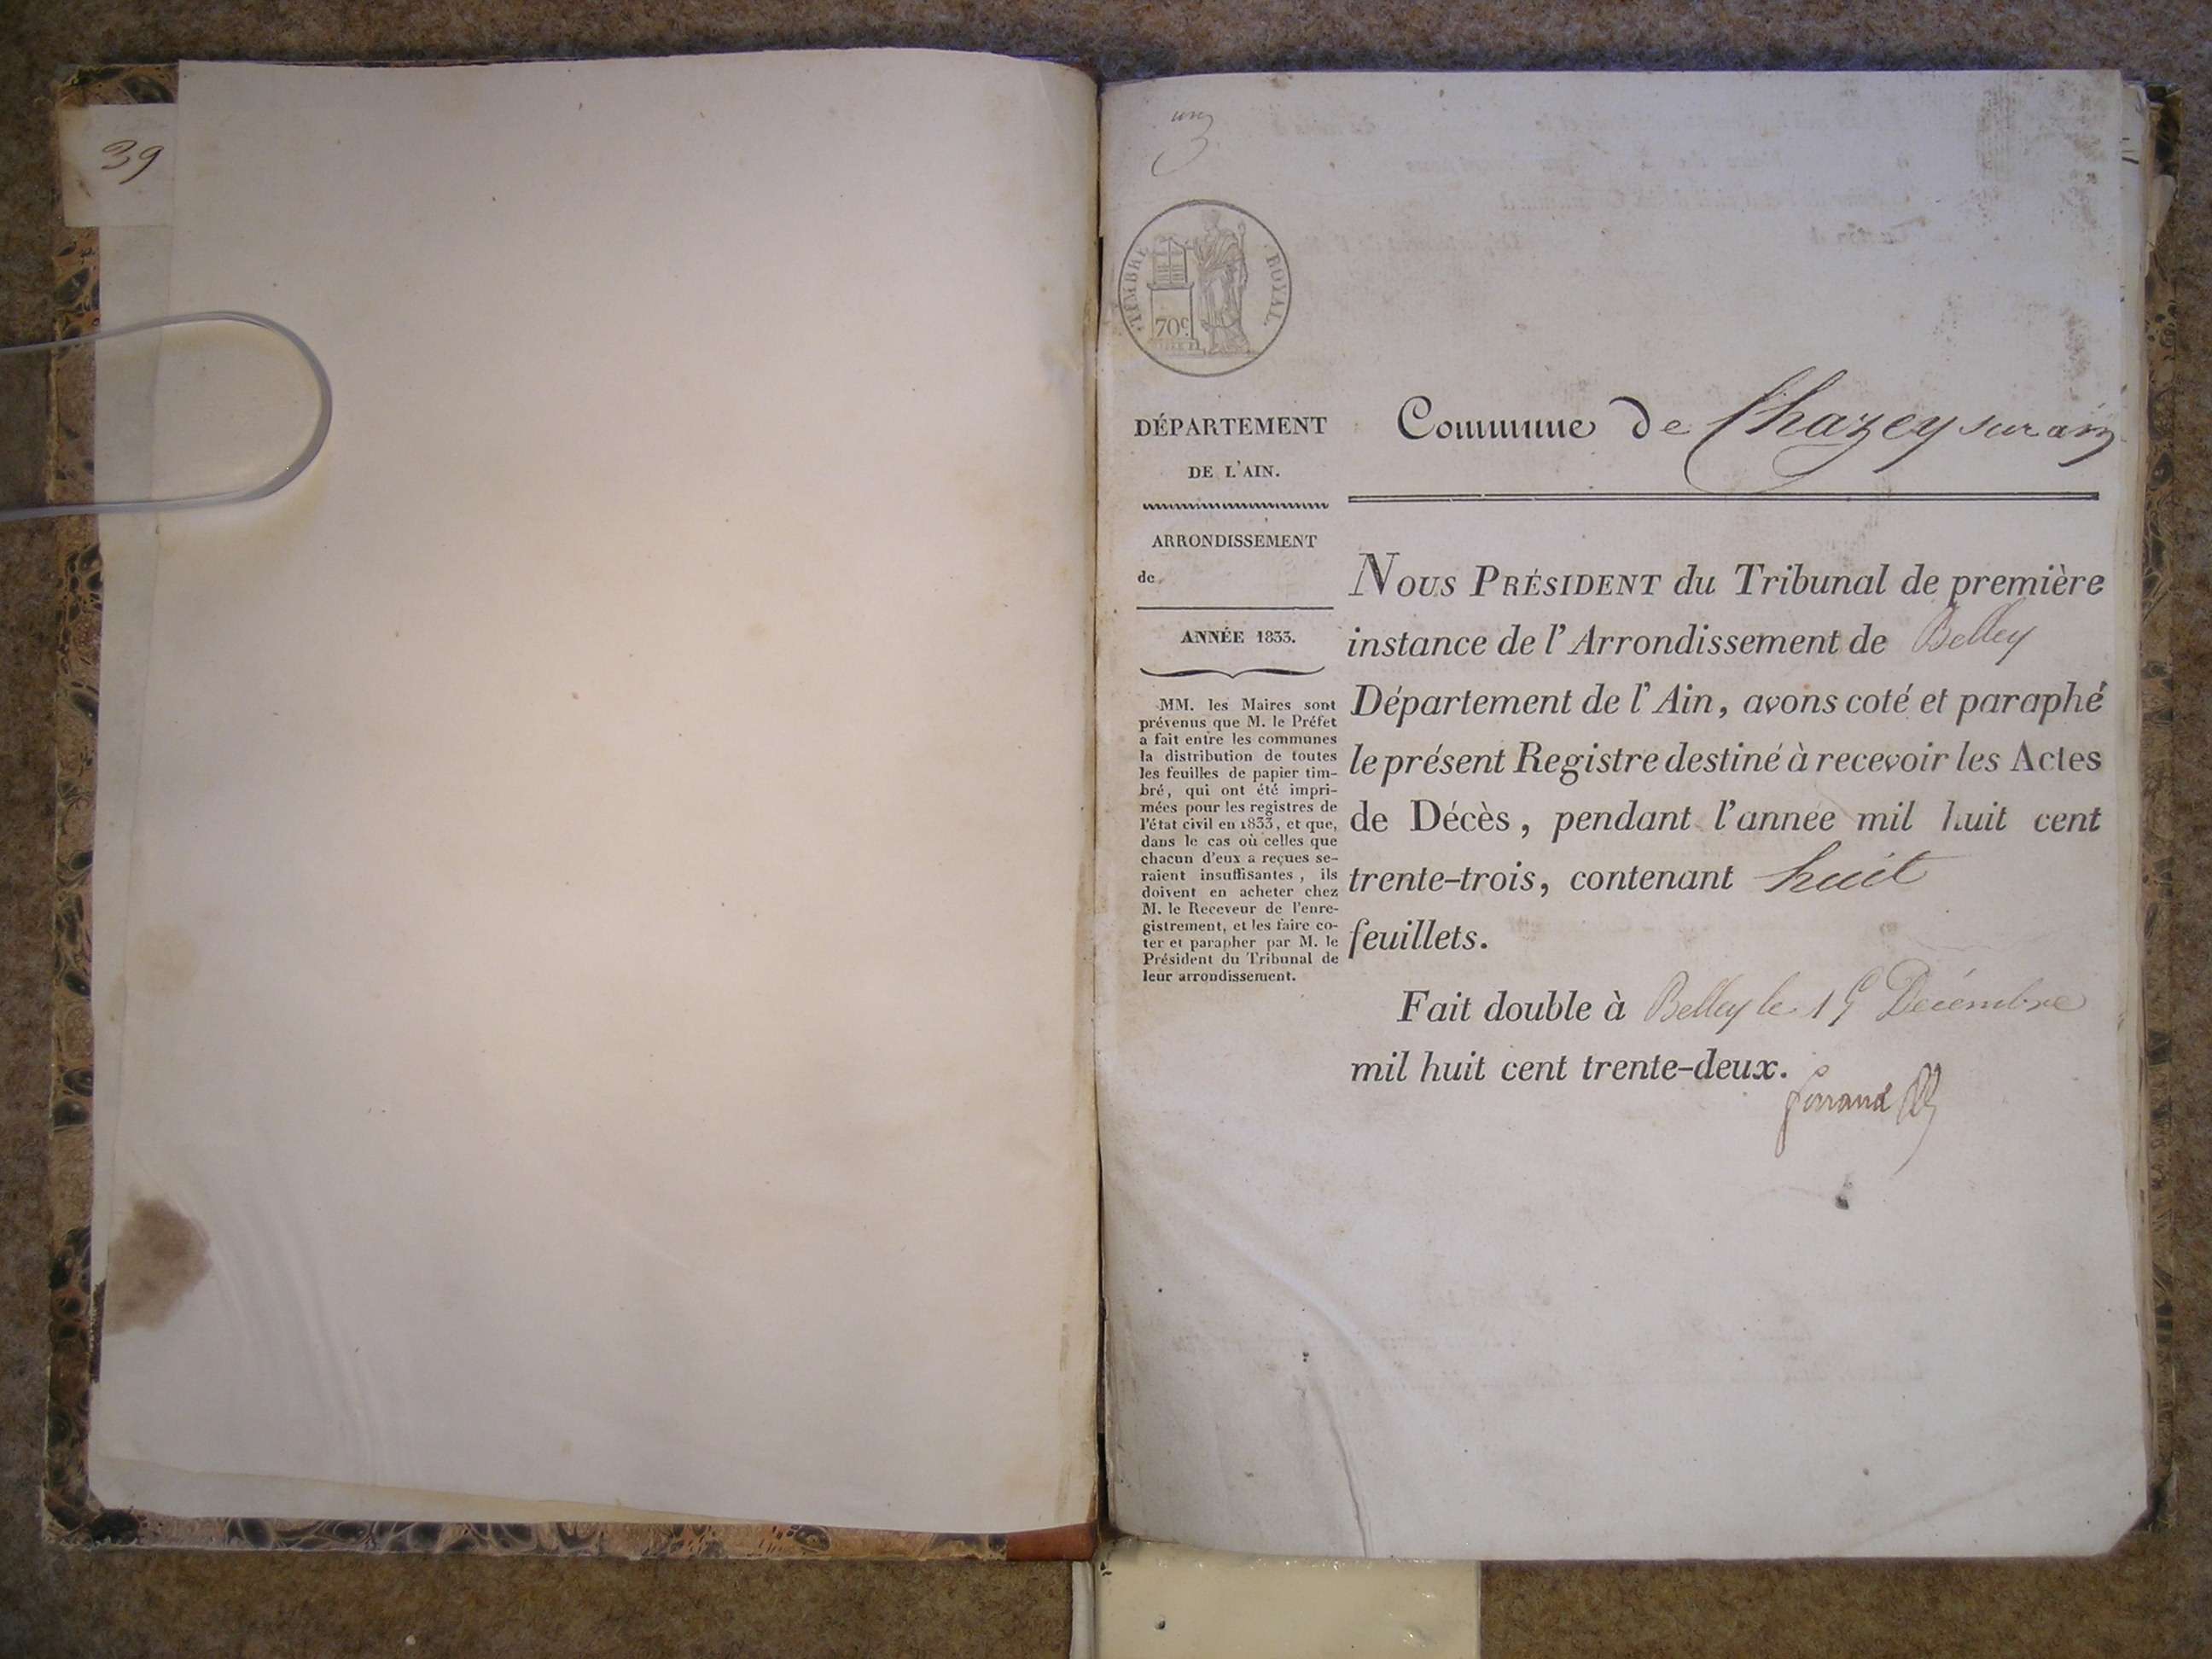 39
TIMBRE ROYAL.
70c.
DÉPARTEMENT
DE L'AIN.
ARRONDISSEMENT
de
ANNÉE 1833.
MM. les Maires sont
prévenus que M. le Préfet
a fait entre les communes
la distribution de toutes
les feuilles de papier tim-
bré, qui ont été impri-
mées pour les registres de
l'état civil en 1833, et que,
dans le cas où celles que
chacun d'eux a reçues se-
raient insuffisantes, ils
doivent en acheter chez
M. le Receveur de l'enre-
gistrement, et les faire co-
ter et parapher par M. le
Président du Tribunal de
leur arrondissement.
Commune de Chazey sur ain
NOUS PRÉSIDENT du Tribunal de première
instance de l'Arrondissement de Belley
Département de l'Ain, avons coté et paraphé
le présent Registre destiné à recevoir les Actes
de Décès, pendant l'année mil huit cent
trente-trois, contenant huit
feuillets.
Fait double à Belley le Décembre
mil huit cent trente-deux.